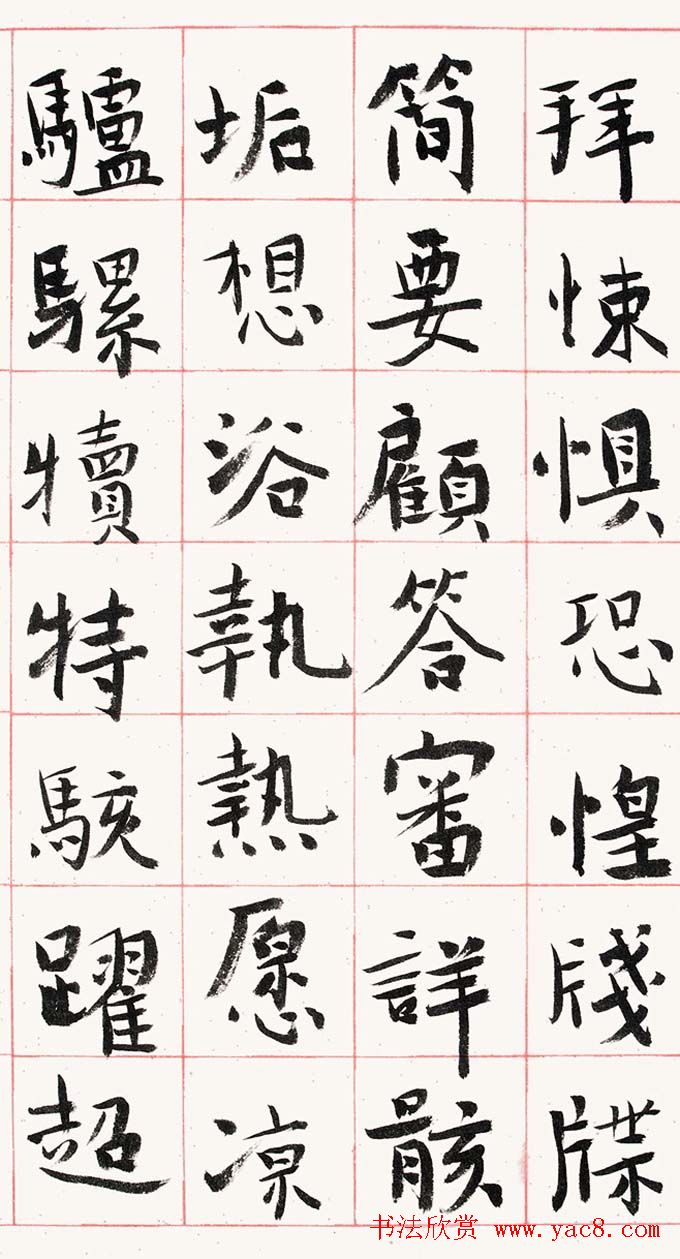 拜悚懼恐惶牋牒
简要顧答審詳骸
垢想浴執熱愿凉
驢騾犢特駭躍超
书法欣赏 www.yac8.com